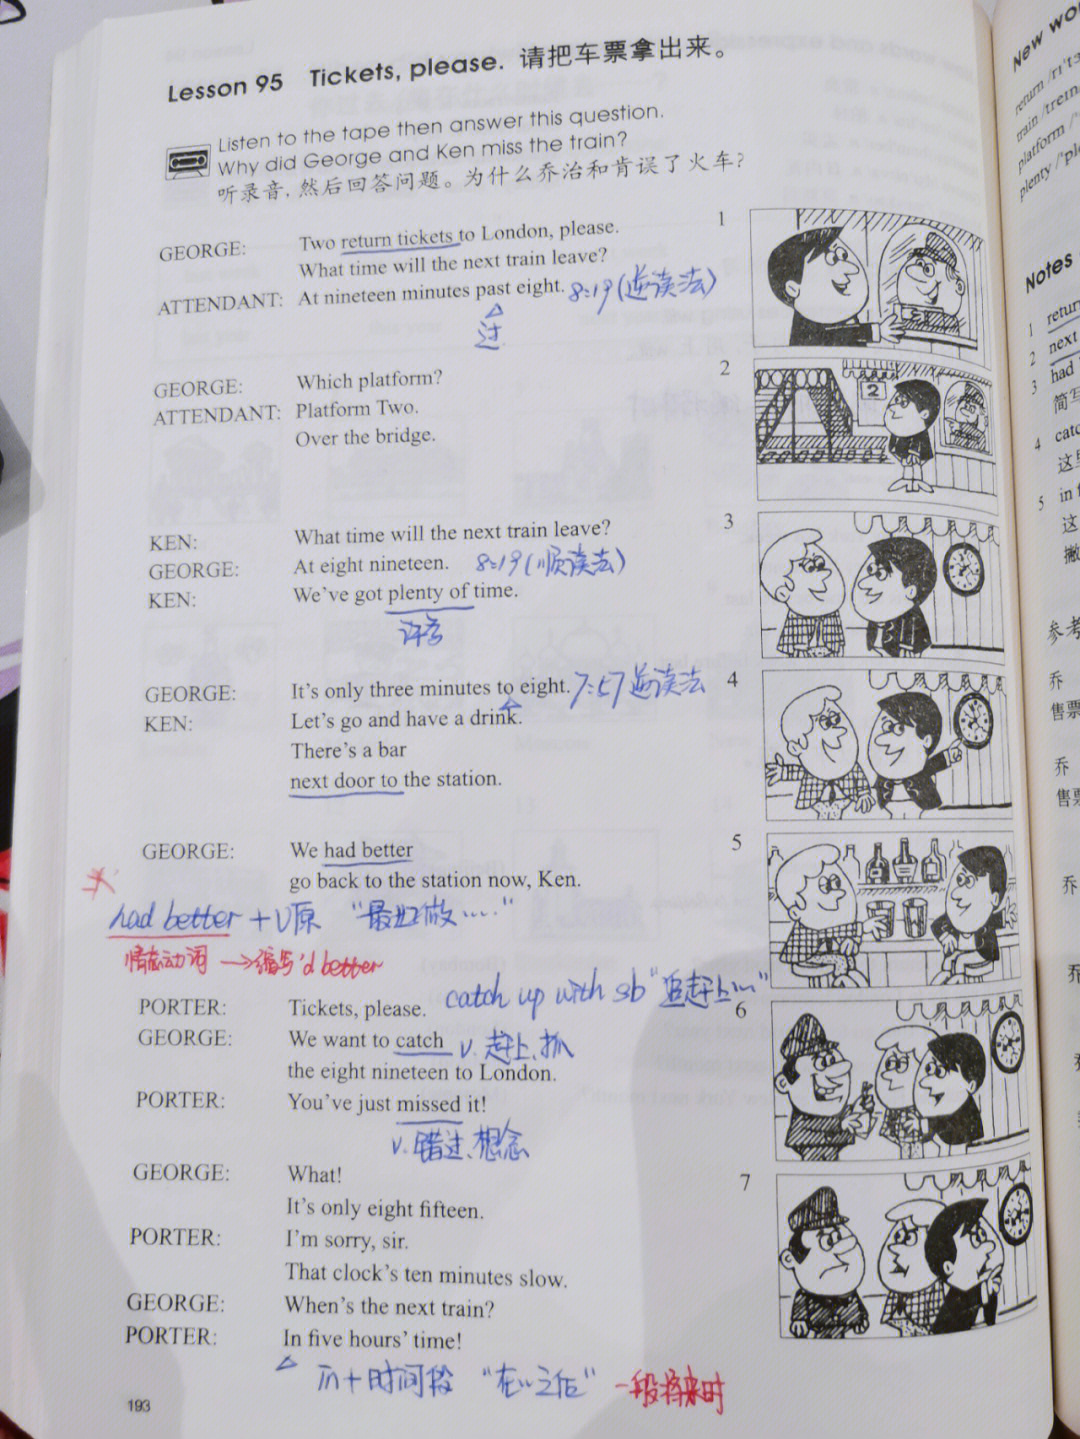 Lesson 95 Tickets, please. 请把车票拿出来。
Listen to the tape then answer this question.
Why did George and Ken miss the train?
听录音，然后回答问题。为什么乔治和肯误了火车？
GEORGE: Two return tickets to London, please. 1
What time will the next train leave?
ATTENDANT: At nineteen minutes past eight. 8:19(逆读法)
过
GEORGE: Which platform? 2
ATTENDANT: Platform Two.
Over the bridge.
2
KEN: What time will the next train leave? 3
GEORGE: At eight nineteen. 8:19(顺读法)
KEN: We've got plenty of time.
许多
GEORGE: It's only three minutes to eight. 7:57逆读法 4
KEN: Let's go and have a drink.
There's a bar
next door to the station.
GEORGE: We had better 5
go back to the station now, Ken.
had better + V原 "最好做...."
情态动词 →缩写'd better
PORTER: Tickets, please. catch up with sb "追赶上..." 6
GEORGE: We want to catch v. 赶上、抓
the eight nineteen to London.
PORTER: You've just missed it!
v. 错过、想念
GEORGE: What! 7
It's only eight fifteen.
PORTER: I'm sorry, sir.
That clock's ten minutes slow.
GEORGE: When's the next train?
PORTER: In five hours' time!
in+时间段 "在...之后" 一般将来时
193
New
return
train
platform
plenty
Notes
1 return
2 next
3 had
简写
4
这里
5
这
撇
参考
乔
售票
乔
售票
乔